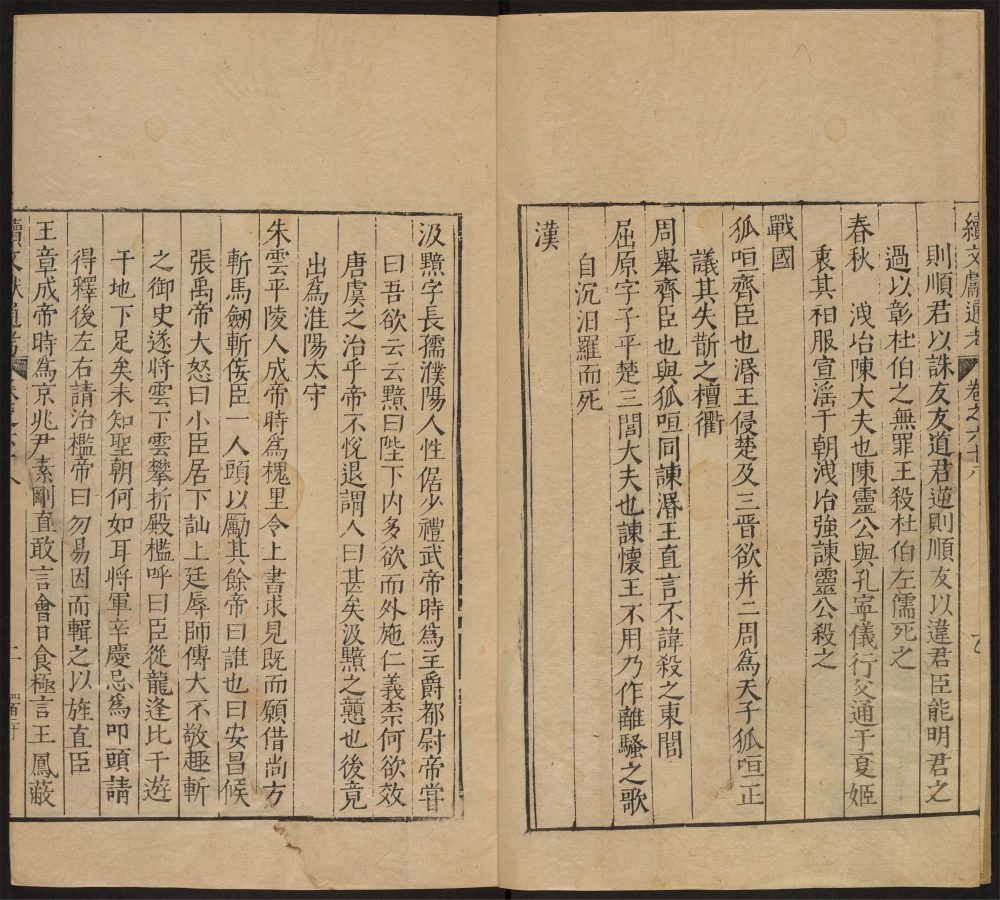 續文獻通考 卷之六十八
則順君以誅友友道君逆則順友以違君臣能明君之
過以彰杜伯之無罪王殺杜伯左儒死之
春秋 洩冶陳大夫也陳靈公與孔寍儀行父通于夏姬
衷其衵服宣滛于朝洩冶強諫靈公殺之
戰國
狐咺齊臣也湣王侵楚及三晋欲并二周爲天子狐咺正
議其失斮之檀衢
周舉齊臣也與狐咺同諫湣王直言不諱殺之東閭
屈原字子平楚三閭大夫也諫懷王不用乃作離騷之歌
自沉汨羅而死
漢
汲黯字長孺濮陽人性倨少禮武帝時爲主爵都尉帝甞
曰吾欲云云黯曰陛下内多欲而外施仁義柰何欲效
唐虞之治乎帝不悅退謂人曰甚矣汲黯之戇也後竟
出爲淮陽太守
朱雲平陵人成帝時爲槐里令上書求見既而願借尚方
斬馬劒斬侫臣一人頭以勵其餘帝曰誰也曰安昌候
張禹帝大怒曰小臣居下訕上廷辱師傅大不敬趣斬
之御史遂將雲下雲攀折殿檻呼曰臣從龍逢比干遊
于地下足矣未知聖朝何如耳將軍辛慶忌爲叩頭請
得釋後左右請治檻帝曰勿易因而輯之以旌直臣
王章成帝時爲京兆尹素剛直敢言會日食極言王鳳蔽
續文獻通考 二